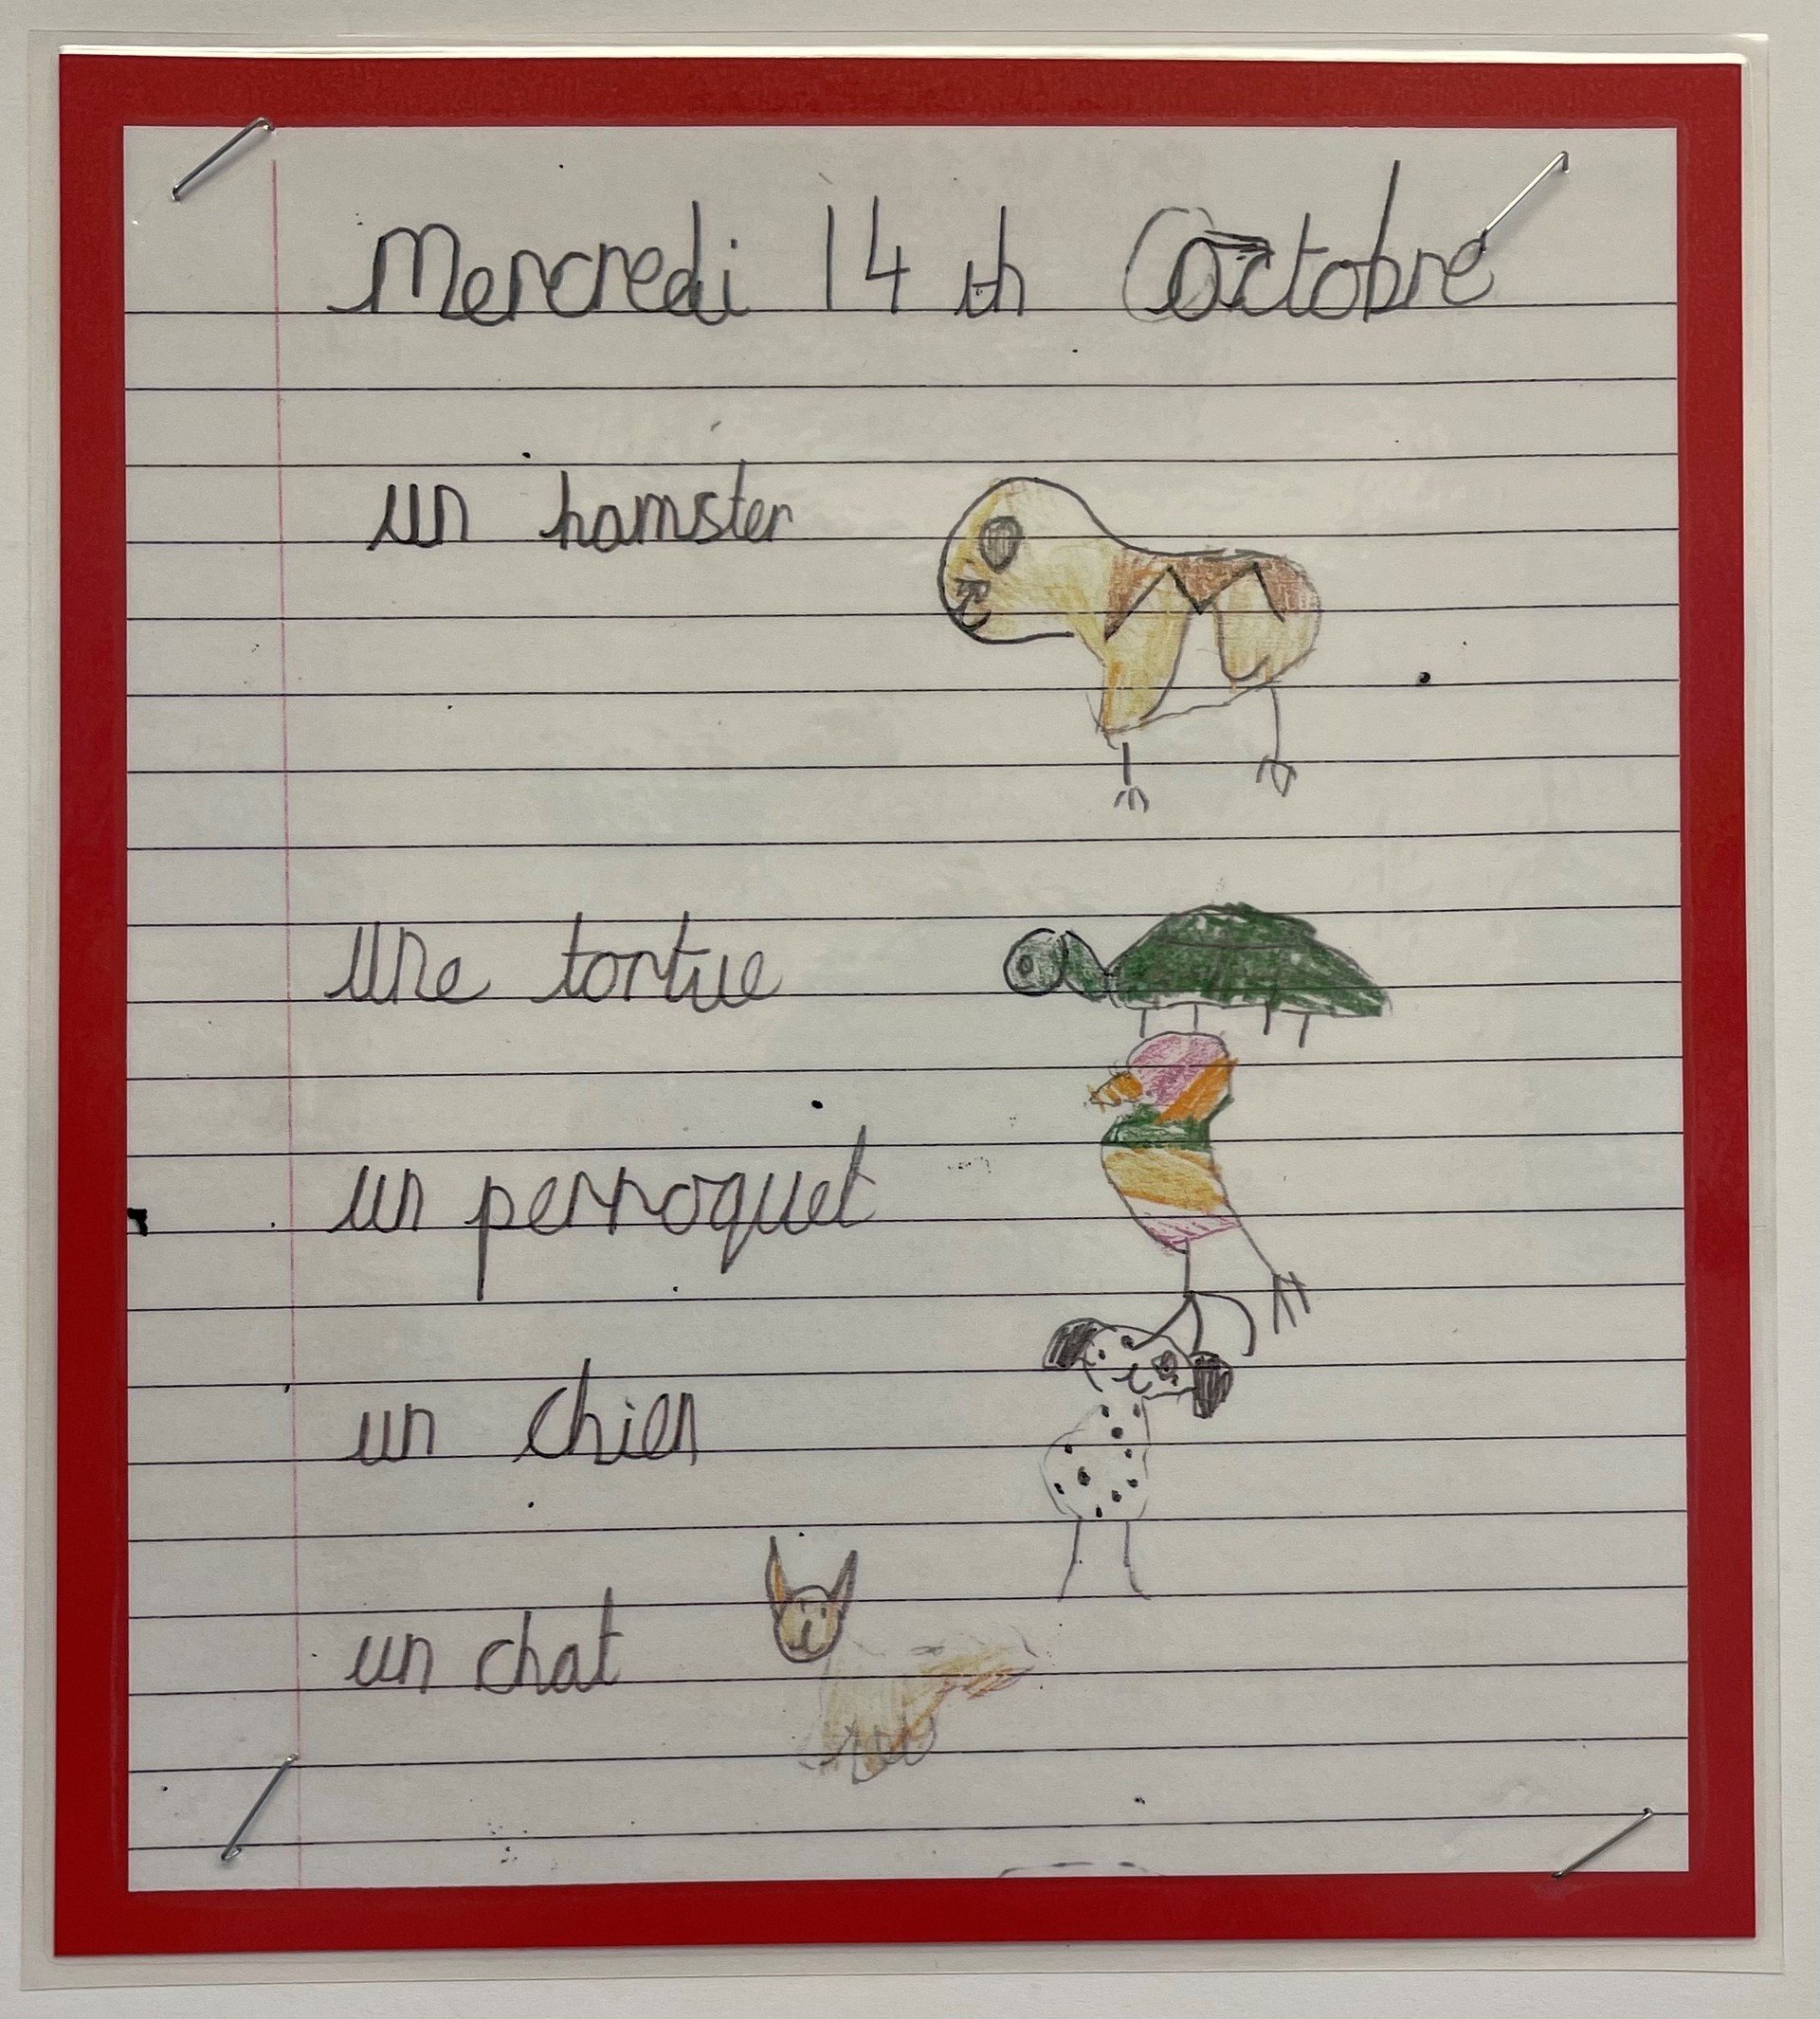 Mercredi 14th Octobre
un hamster
une tortue
un perroquet
un chien
un chat